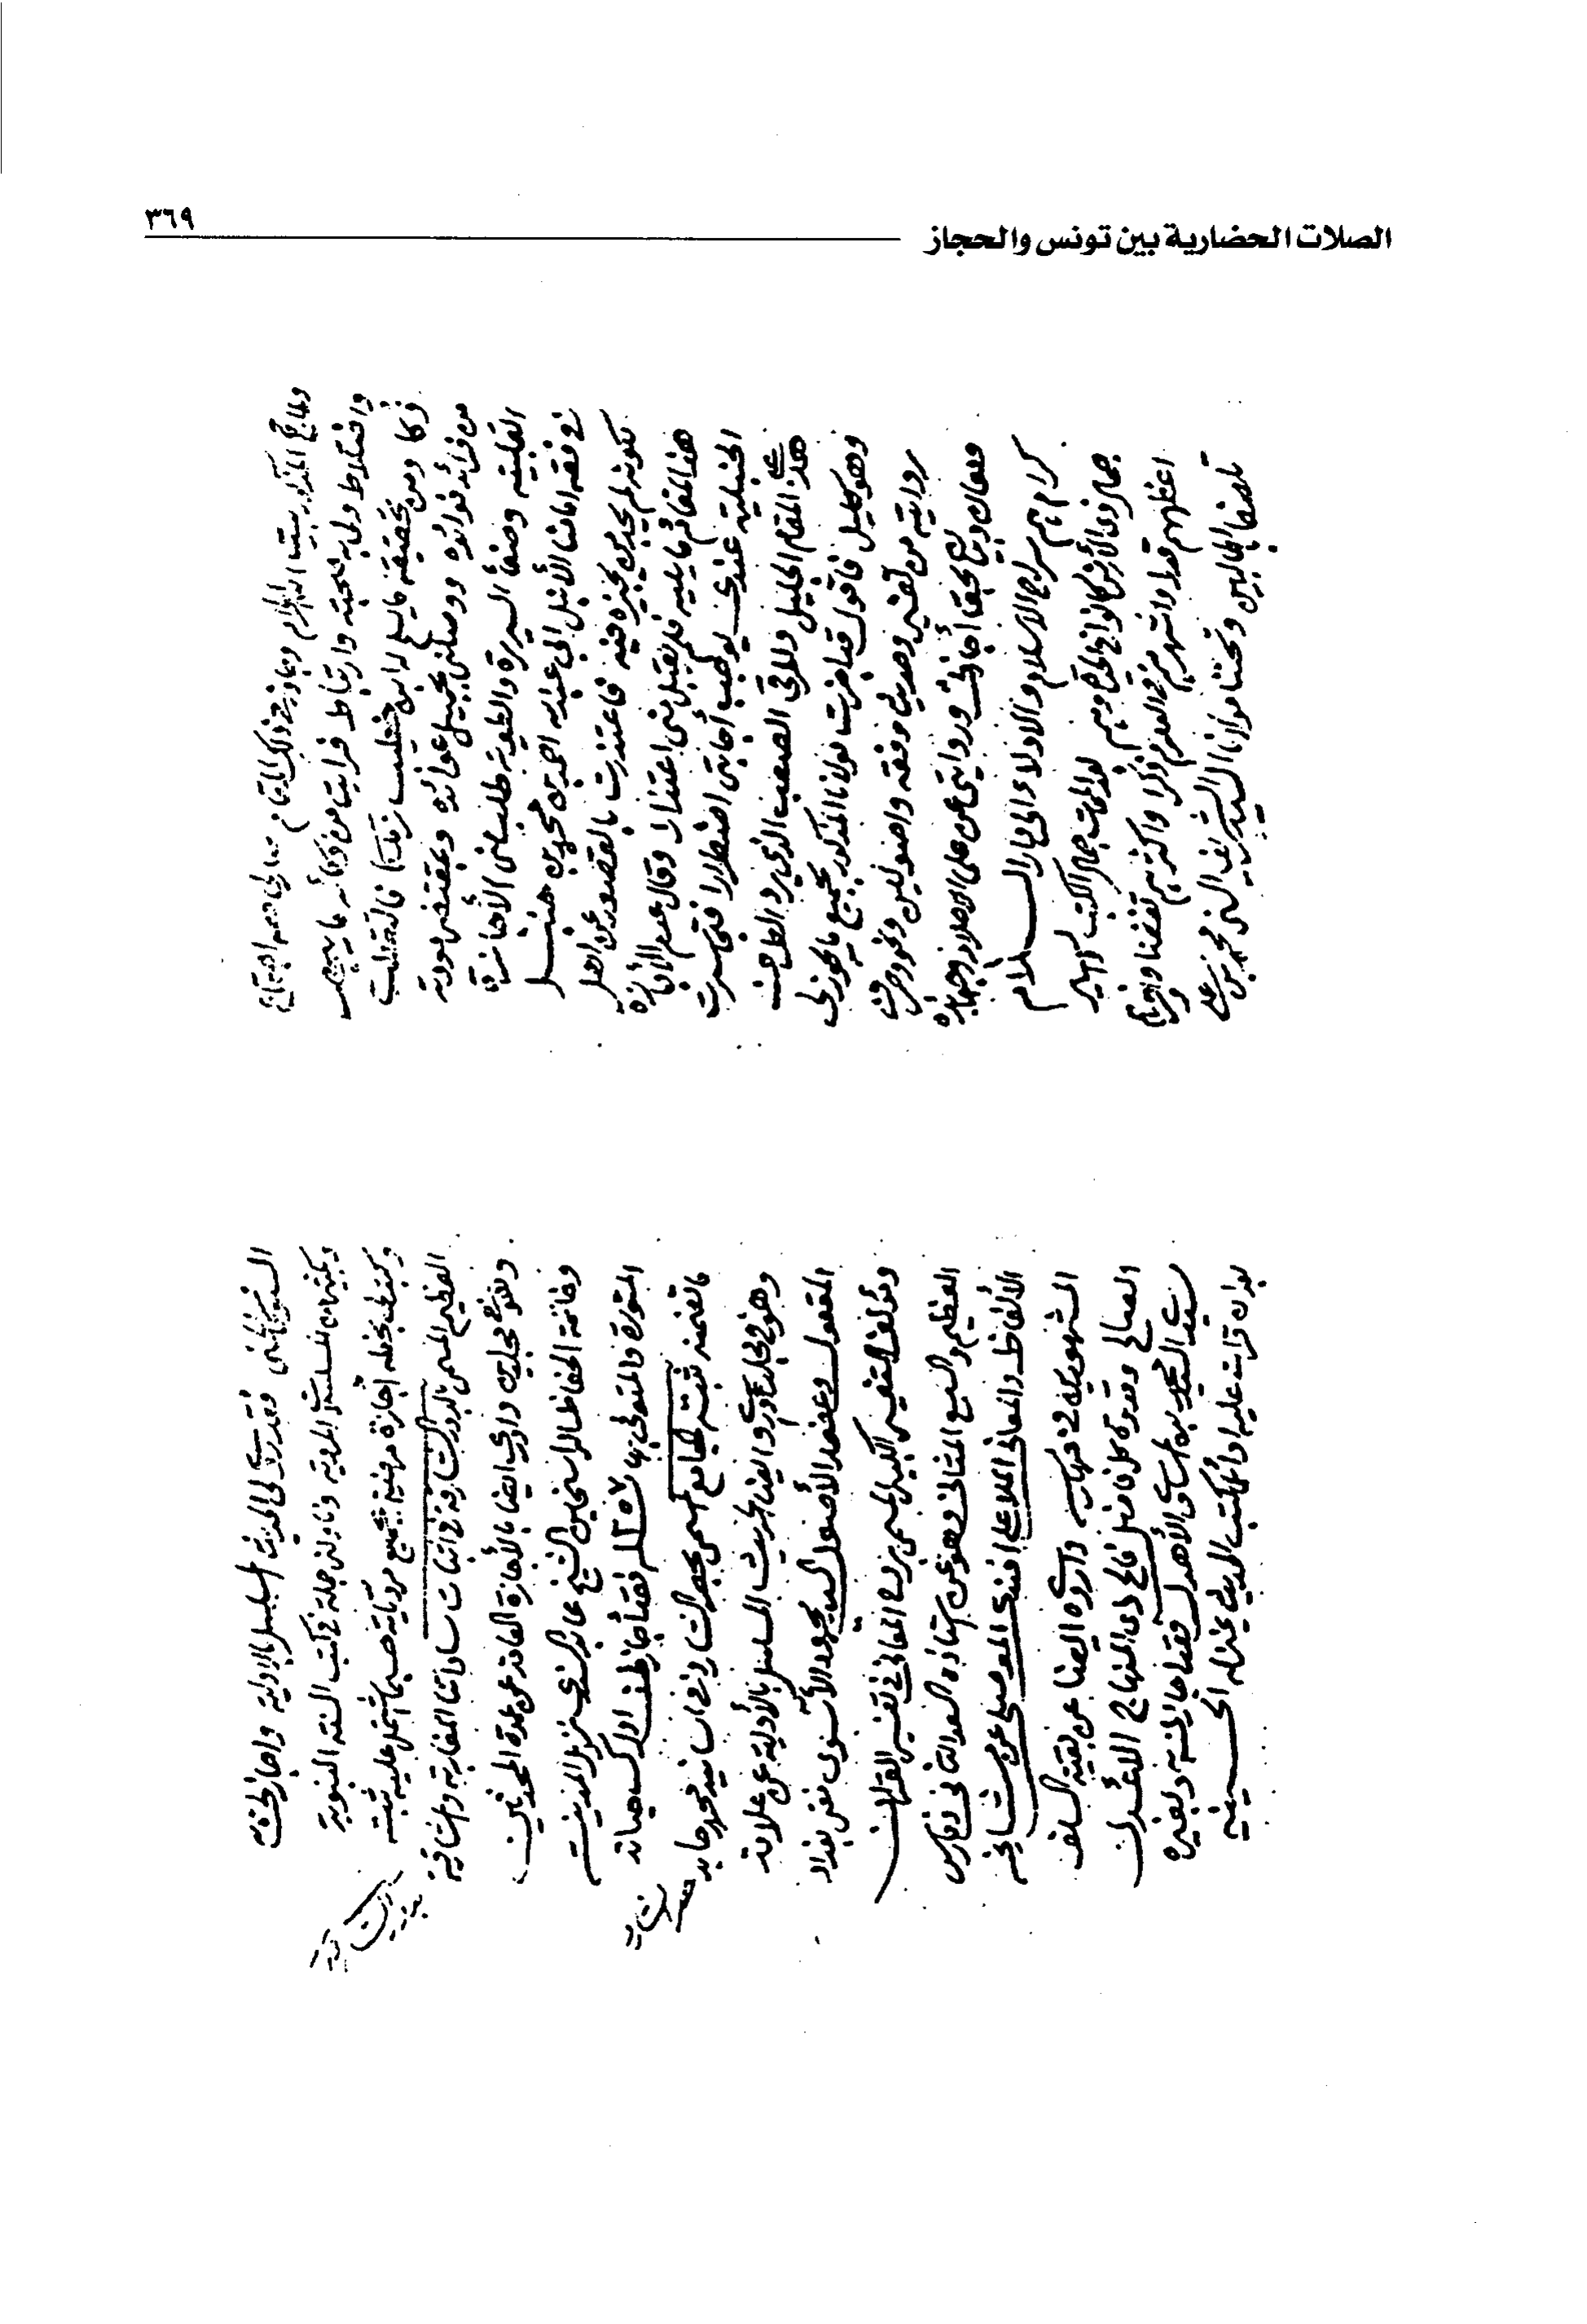 الصلات الحضارية بين تونس والحجاز
٣٦٩
ولما حج المذكور بيت الله الحرام وجاور في ذلك المقام صار لي معه اجتماع
واختلاط ولي به صحبة وارتباط فرايت من ذكائه ما يبهر
ذكا ومن تحقيقه ما يسلم له ابن خطيب زملكا فالتقطت
من فرائد فوائده ووصلني بجميل عوائده وبمقتضى مودته
القلبية وصفاء السيرة والطوية طلب مني الأجازة
في فقه امامنا الأنبل ابي عبدالله احمد بن محمد بن حنبل
لكونه لم يجد من يجيزه فيه فاعتذرت بالقصور عن اهل
هذا المقام وما يليه فلم يقبل مني اعتذارا وقال عدم
الحنبلية عندي يوجب أجابتي اضطرارا فتجاسرت
هذا المقام الجليل والمرقى الصعب الذي يرد الطرف
وهو كليل فاقول قد اجزت مولانا المذكور بجميع ما يجوز لي
روايته من تفسير وحديث وفقه واصولين ونحو وصرف
ومعان وبيان بحق أجازتي وروايتي عن علماء اعلام وجهابذة
كرام هم سراج الاسلام والادلاء الى دار السلام
جمال ذي الأرض كانوا في الحياة وهم بعد الممات جمال الكتب والسير
اعظمهم قدرا واشهرهم في العلوم ذكرا واكثرهم تفضلا وفخرا
وشيخنا مولانا السيد الشريف السني محمد بن علي
السنوسي الحسني فقد روى لي الحديث المسلسل بالاولية واجازني به
وبكثير من المسلسلات المروية وناولني جملة في كتب السنة النبوية
وكتب لي بخطه أجازة مرضية بجميع مروياته حسبما اشتمل عليه ثبته
العظيم المسمى بالبدور الشارقة في اثبات ساداتنا المغاربة والمشارقة
وهو في مجلدين واروي ايضا بالأجازة العامة عن عمدة المحدثين
وخاتمة الحفاظ الراسخين الشيخ عابد السندي نزيل المدينة
المنورة والمتوفي بها فقد أجاز لمن ادرك حياته
ما تضمنه ثبته الجامع المسمى بحصر الشارد في اسانيد محمد عابد
وهو في مجلد واروي ايضا الحديث المسلسل بالأولية عن علامة
المعقول وعضد الأصول السيد محمود الألوسي مفتي بغداد
ومؤلف التفسير الكبير المسمى بروح المعاني في تفسير القرآن
العظيم والسبع المثاني وهو عن استاذه
الألفاظ والمعاني الملا علي افندي الموصلي عن مشائخه
المشهورين في فهارسه وارويه ايضا عن بقية السلف
الصالح وقدوة كل فاضل فالح ذي المنهاج الأعدل
سيدي السيد محمد بن المساوى الأهدل فقد اجازني به وبغيره
بعد ان قرات عليه اوائل كتب الحديث بمنزله